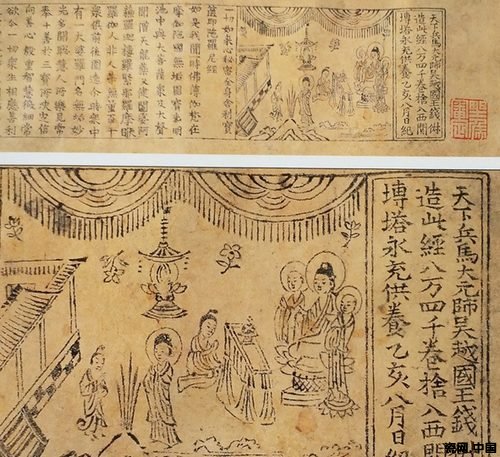 天下兵馬大元帥吳越國王錢俶
造此經八万四千卷捨入西關
塼塔永充供養乙亥八月日紀
一切如來心秘密全身舍利寶
篋印陀羅尼經
如是我聞一時佛薄伽梵在
摩伽陀國無垢園寶光明
池中與大菩薩衆及大聲
聞僧天龍藥叉健闥婆阿
蘇羅迦樓羅緊那羅摩睺
羅伽人非人等無量百千
衆俱前後圍遶爾時衆中
有一大婆羅門名無垢妙
光多聞聰慧人所樂見常
奉十善於三寶所決定信
向善心殷重智慧微細常
欲令一切衆生相應善利
天下兵馬大元帥吳越國王錢
造此經八万四千卷捨入西關
塼塔永充供養乙亥八月日紀
瓷网.中国